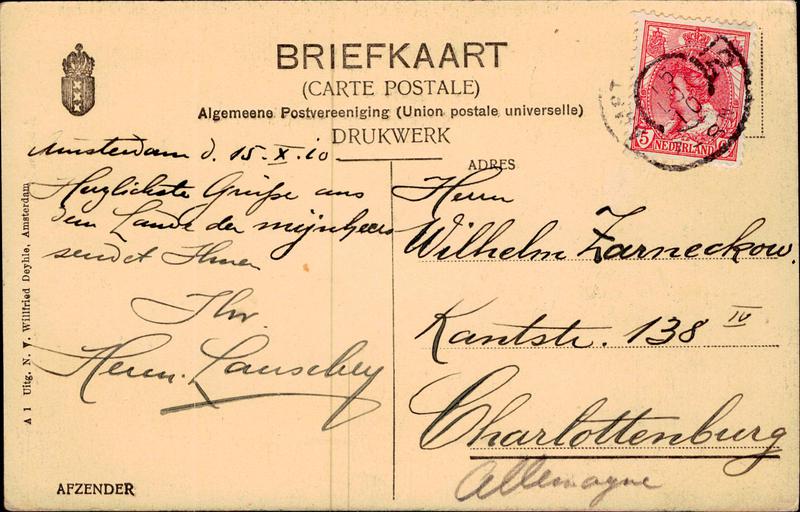 BRIEFKAART
(CARTE POSTALE)
Algemeene Postvereeniging (Union postale universelle)
DRUKWERK
Amsterdam d. 15.X.10
Herzlichste Grüße aus
dem Lande der mijnheers
sendet Ihnen
Ihr
Herm.
AFZENDER
A 1 Uitg. N. V. Willfried Deyhle, Amsterdam
ADRES
Herrn
Wilhelm Zarneckow.
Kantstr. 138 IV
Charlottenburg
Allemagne
5 NEDERLAND